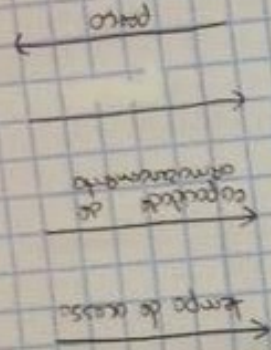 tempo de acesso
capacidade de
armazenamento